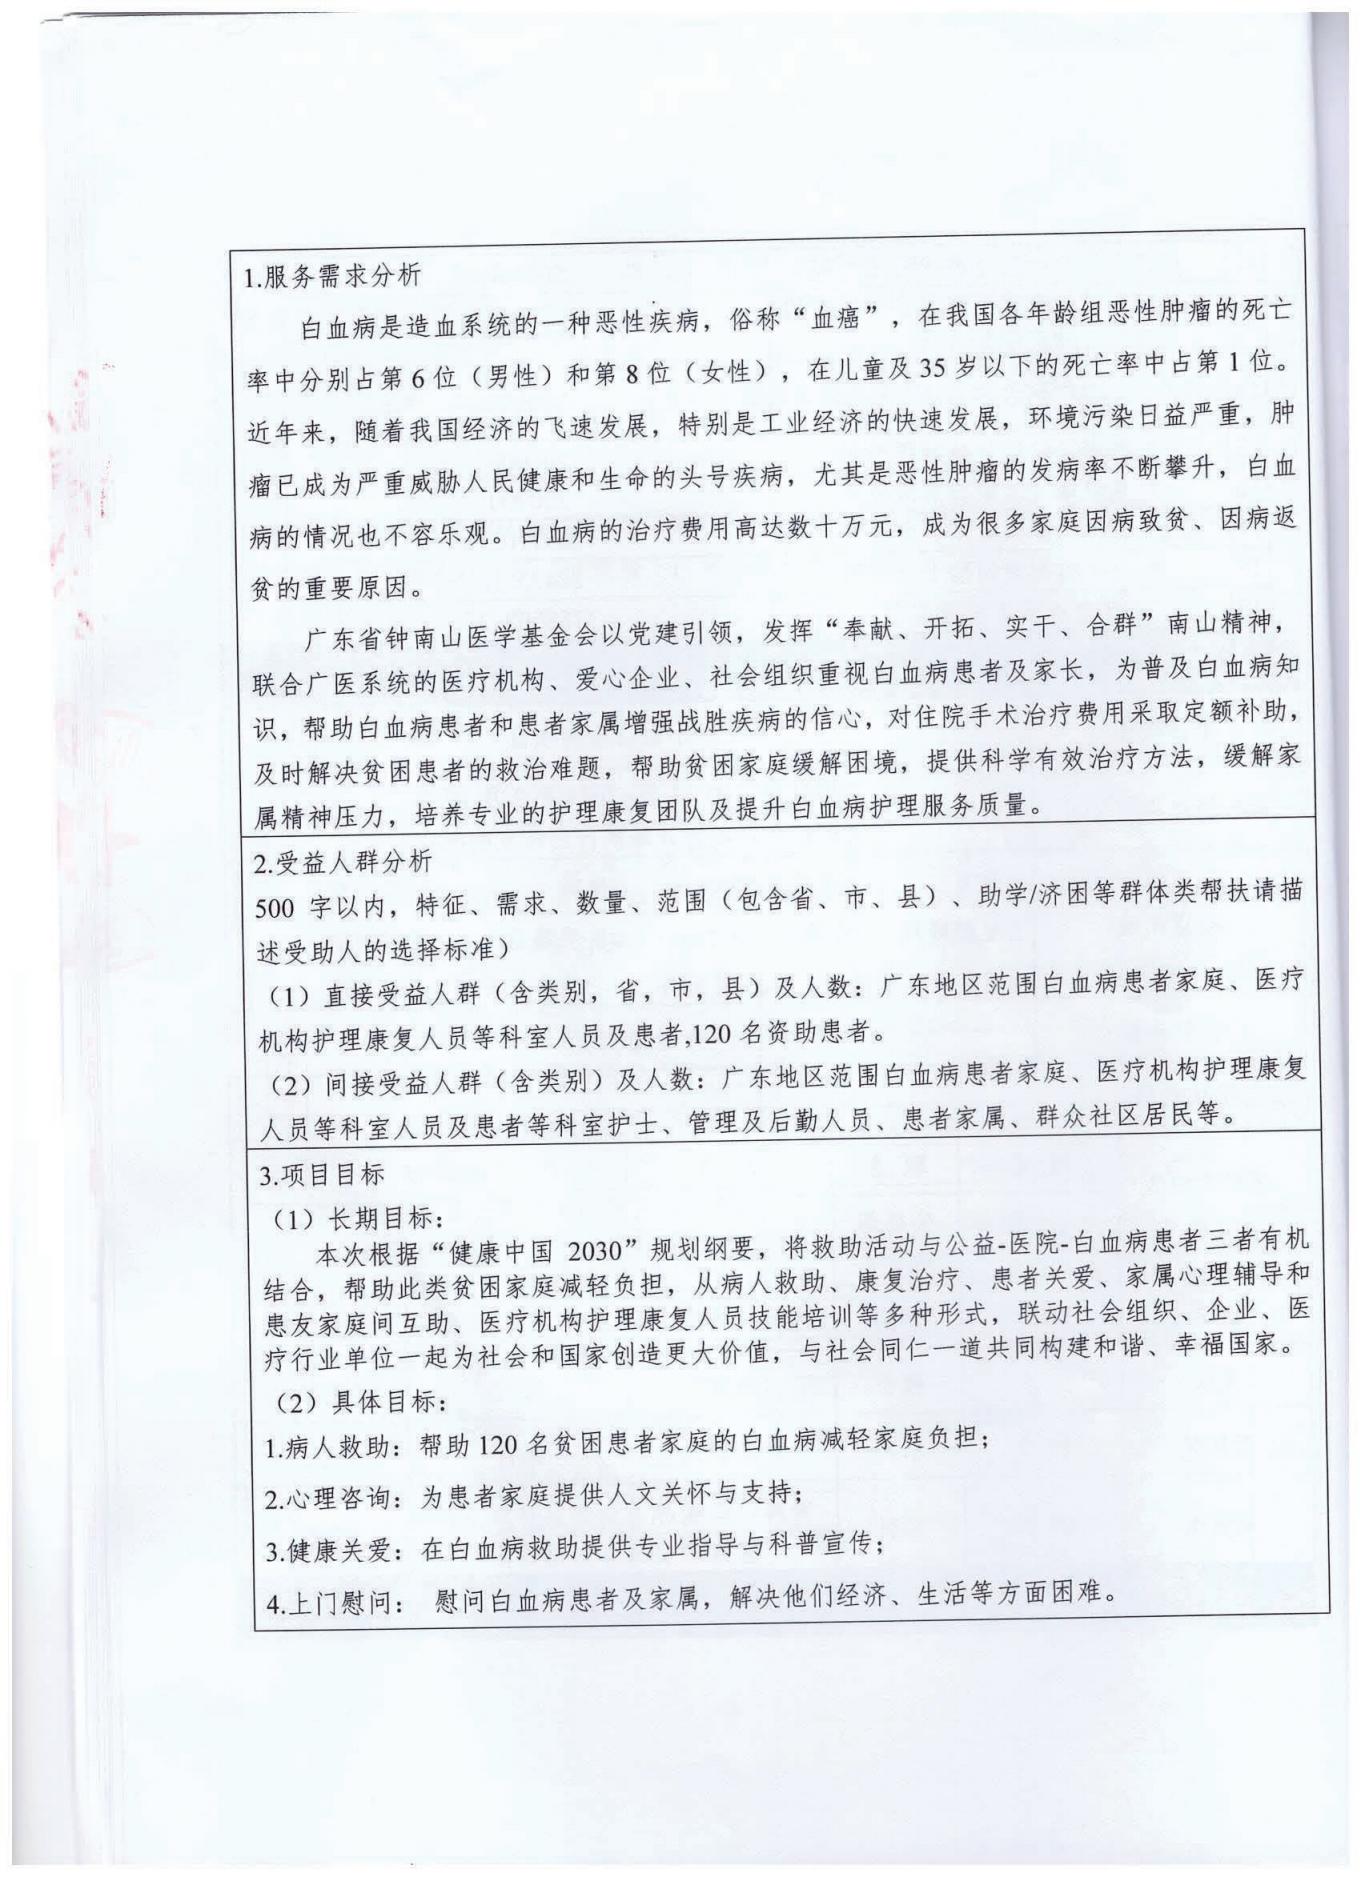 1.服务需求分析
白血病是造血系统的一种恶性疾病，俗称“血癌”，在我国各年龄组恶性肿瘤的死亡
率中分别占第 6 位（男性）和第 8 位（女性），在儿童及 35 岁以下的死亡率中占第 1 位。
近年来，随着我国经济的飞速发展，特别是工业经济的快速发展，环境污染日益严重，肿
瘤已成为严重威胁人民健康和生命的头号疾病，尤其是恶性肿瘤的发病率不断攀升，白血
病的情况也不容乐观。白血病的治疗费用高达数十万元，成为很多家庭因病致贫、因病返
贫的重要原因。
广东省钟南山医学基金会以党建引领，发挥“奉献、开拓、实干、合群”南山精神，
联合广医系统的医疗机构、爱心企业、社会组织重视白血病患者及家长，为普及白血病知
识，帮助白血病患者和患者家属增强战胜疾病的信心，对住院手术治疗费用采取定额补助，
及时解决贫困患者的救治难题，帮助贫困家庭缓解困境，提供科学有效治疗方法，缓解家
属精神压力，培养专业的护理康复团队及提升白血病护理服务质量。
2.受益人群分析
500 字以内，特征、需求、数量、范围（包含省、市、县）、助学/济困等群体类帮扶请描
述受助人的选择标准）
（1）直接受益人群（含类别，省，市，县）及人数：广东地区范围白血病患者家庭、医疗
机构护理康复人员等科室人员及患者,120 名资助患者。
（2）间接受益人群（含类别）及人数：广东地区范围白血病患者家庭、医疗机构护理康复
人员等科室人员及患者等科室护士、管理及后勤人员、患者家属、群众社区居民等。
3.项目目标
（1）长期目标：
本次根据“健康中国 2030”规划纲要，将救助活动与公益-医院-白血病患者三者有机
结合，帮助此类贫困家庭减轻负担，从病人救助、康复治疗、患者关爱、家属心理辅导和
患友家庭间互助、医疗机构护理康复人员技能培训等多种形式，联动社会组织、企业、医
疗行业单位一起为社会和国家创造更大价值，与社会同仁一道共同构建和谐、幸福国家。
（2）具体目标：
1.病人救助：帮助 120 名贫困患者家庭的白血病减轻家庭负担；
2.心理咨询：为患者家庭提供人文关怀与支持；
3.健康关爱：在白血病救助提供专业指导与科普宣传；
4.上门慰问： 慰问白血病患者及家属，解决他们经济、生活等方面困难。